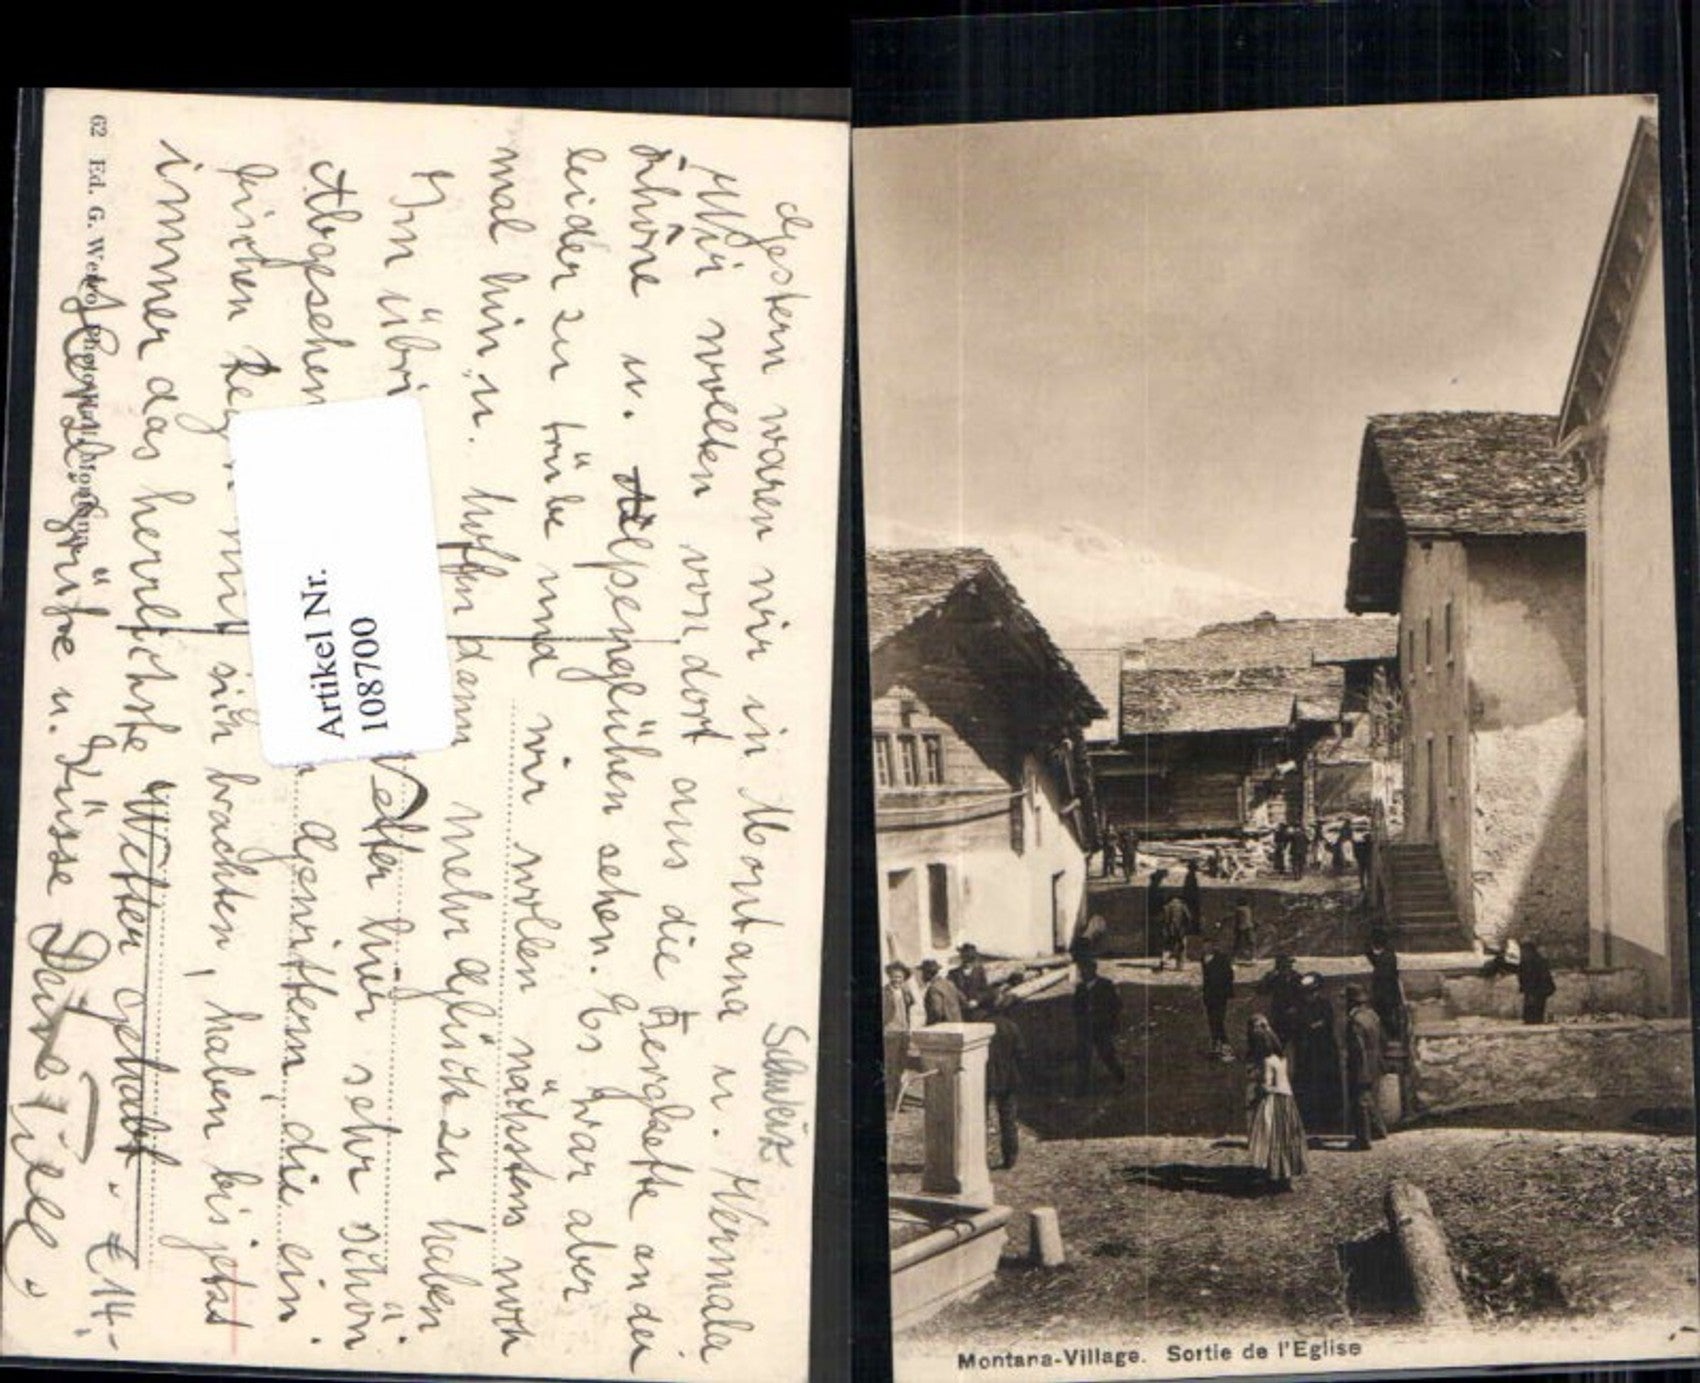 Schweiz
Gestern waren wir in Montana u. Vermala
Wir wollten von dort aus die Bergkette an der
Rhône u. Alpenglühen sehen. Es war aber
leider zu trübe und wir wollen nächstens noch
mal hin u. hoffen dann mehr Glück zu haben
Im übri Wetter hier sehr schön.
Abgesehen Gewittern, die ein
bischen Reg mit sich brachten, haben bis jetzt
immer das herrlichste Wetter gehabt.
Herzl. Grüße u. Küsse Deine Till.
€ 14.-
62 Ed. G.
Artikel Nr.
108700
Montana-Village. Sortie de l'Eglise